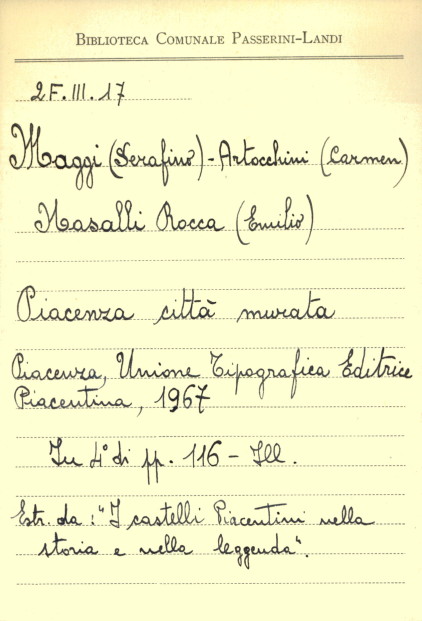 BIBLIOTECA COMUNALE PASSERINI-LANDI
2F.III.17
Maggi (Serafino) - Artocchini (Carmen)
Nasalli Rocca (Emilio)
Piacenza città murata
Piacenza, Unione Tipografica Editrice
Piacentina, 1967
In 4° di pp. 116 - Ill.
Estr. da: "I castelli Piacentini nella
storia e nella leggenda".